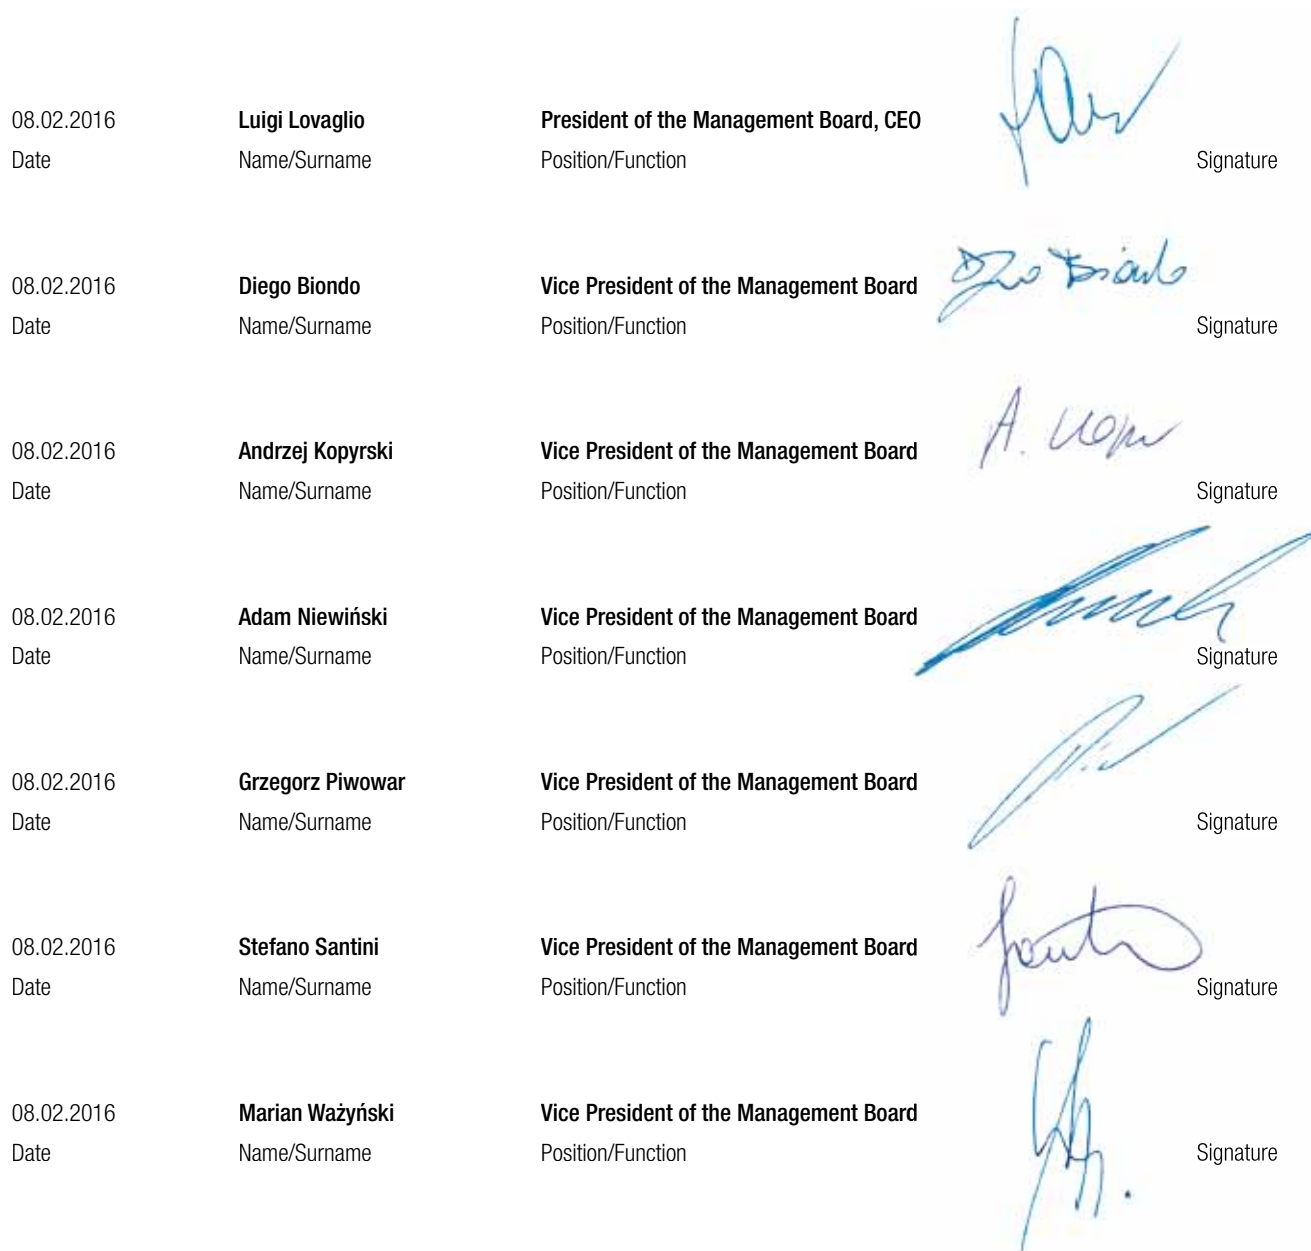 08.02.2016 Luigi Lovaglio President of the Management Board, CEO
Date Name/Surname Position/Function Signature
Diego Biondo
08.02.2016 Diego Biondo Vice President of the Management Board
Date Name/Surname Position/Function Signature
08.02.2016 Andrzej Kopyrski Vice President of the Management Board
Date Name/Surname Position/Function Signature
08.02.2016 Adam Niewiński Vice President of the Management Board
Date Name/Surname Position/Function Signature
08.02.2016 Grzegorz Piwowar Vice President of the Management Board
Date Name/Surname Position/Function Signature
08.02.2016 Stefano Santini Vice President of the Management Board
Date Name/Surname Position/Function Signature
08.02.2016 Marian Ważyński Vice President of the Management Board
Date Name/Surname Position/Function Signature